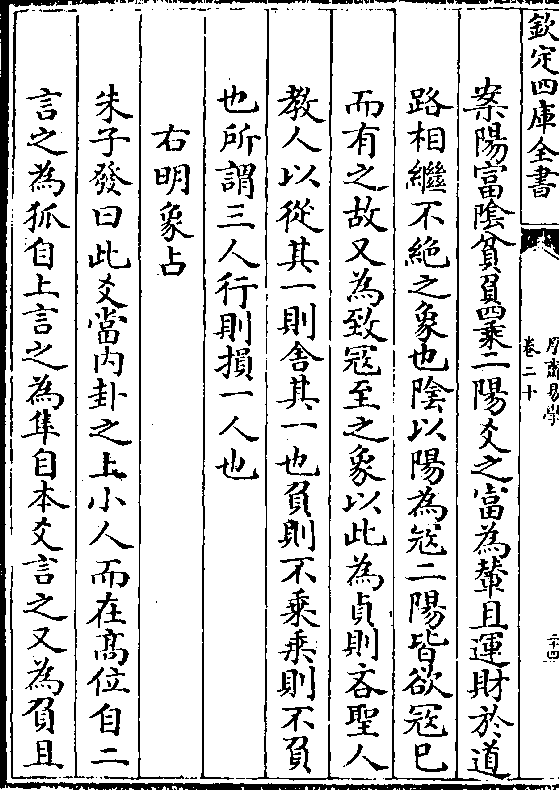 欽定四庫全書
厚齋易學
卷二十
二十四
案陽富陰貧負四乗二陽爻之富為輦且運財於道
路相繼不絶之象也陰以陽為冦二陽皆欲冦巳
而有之故又為致冦至之象以此為貞則吝聖人
教人以從其一則舍其一也負則不乗乗則不負
也所謂三人行則損一人也
右明象占
朱子發曰此爻當内卦之上小人而在髙位自二
言之為狐自上言之為隼自本爻言之又為負且